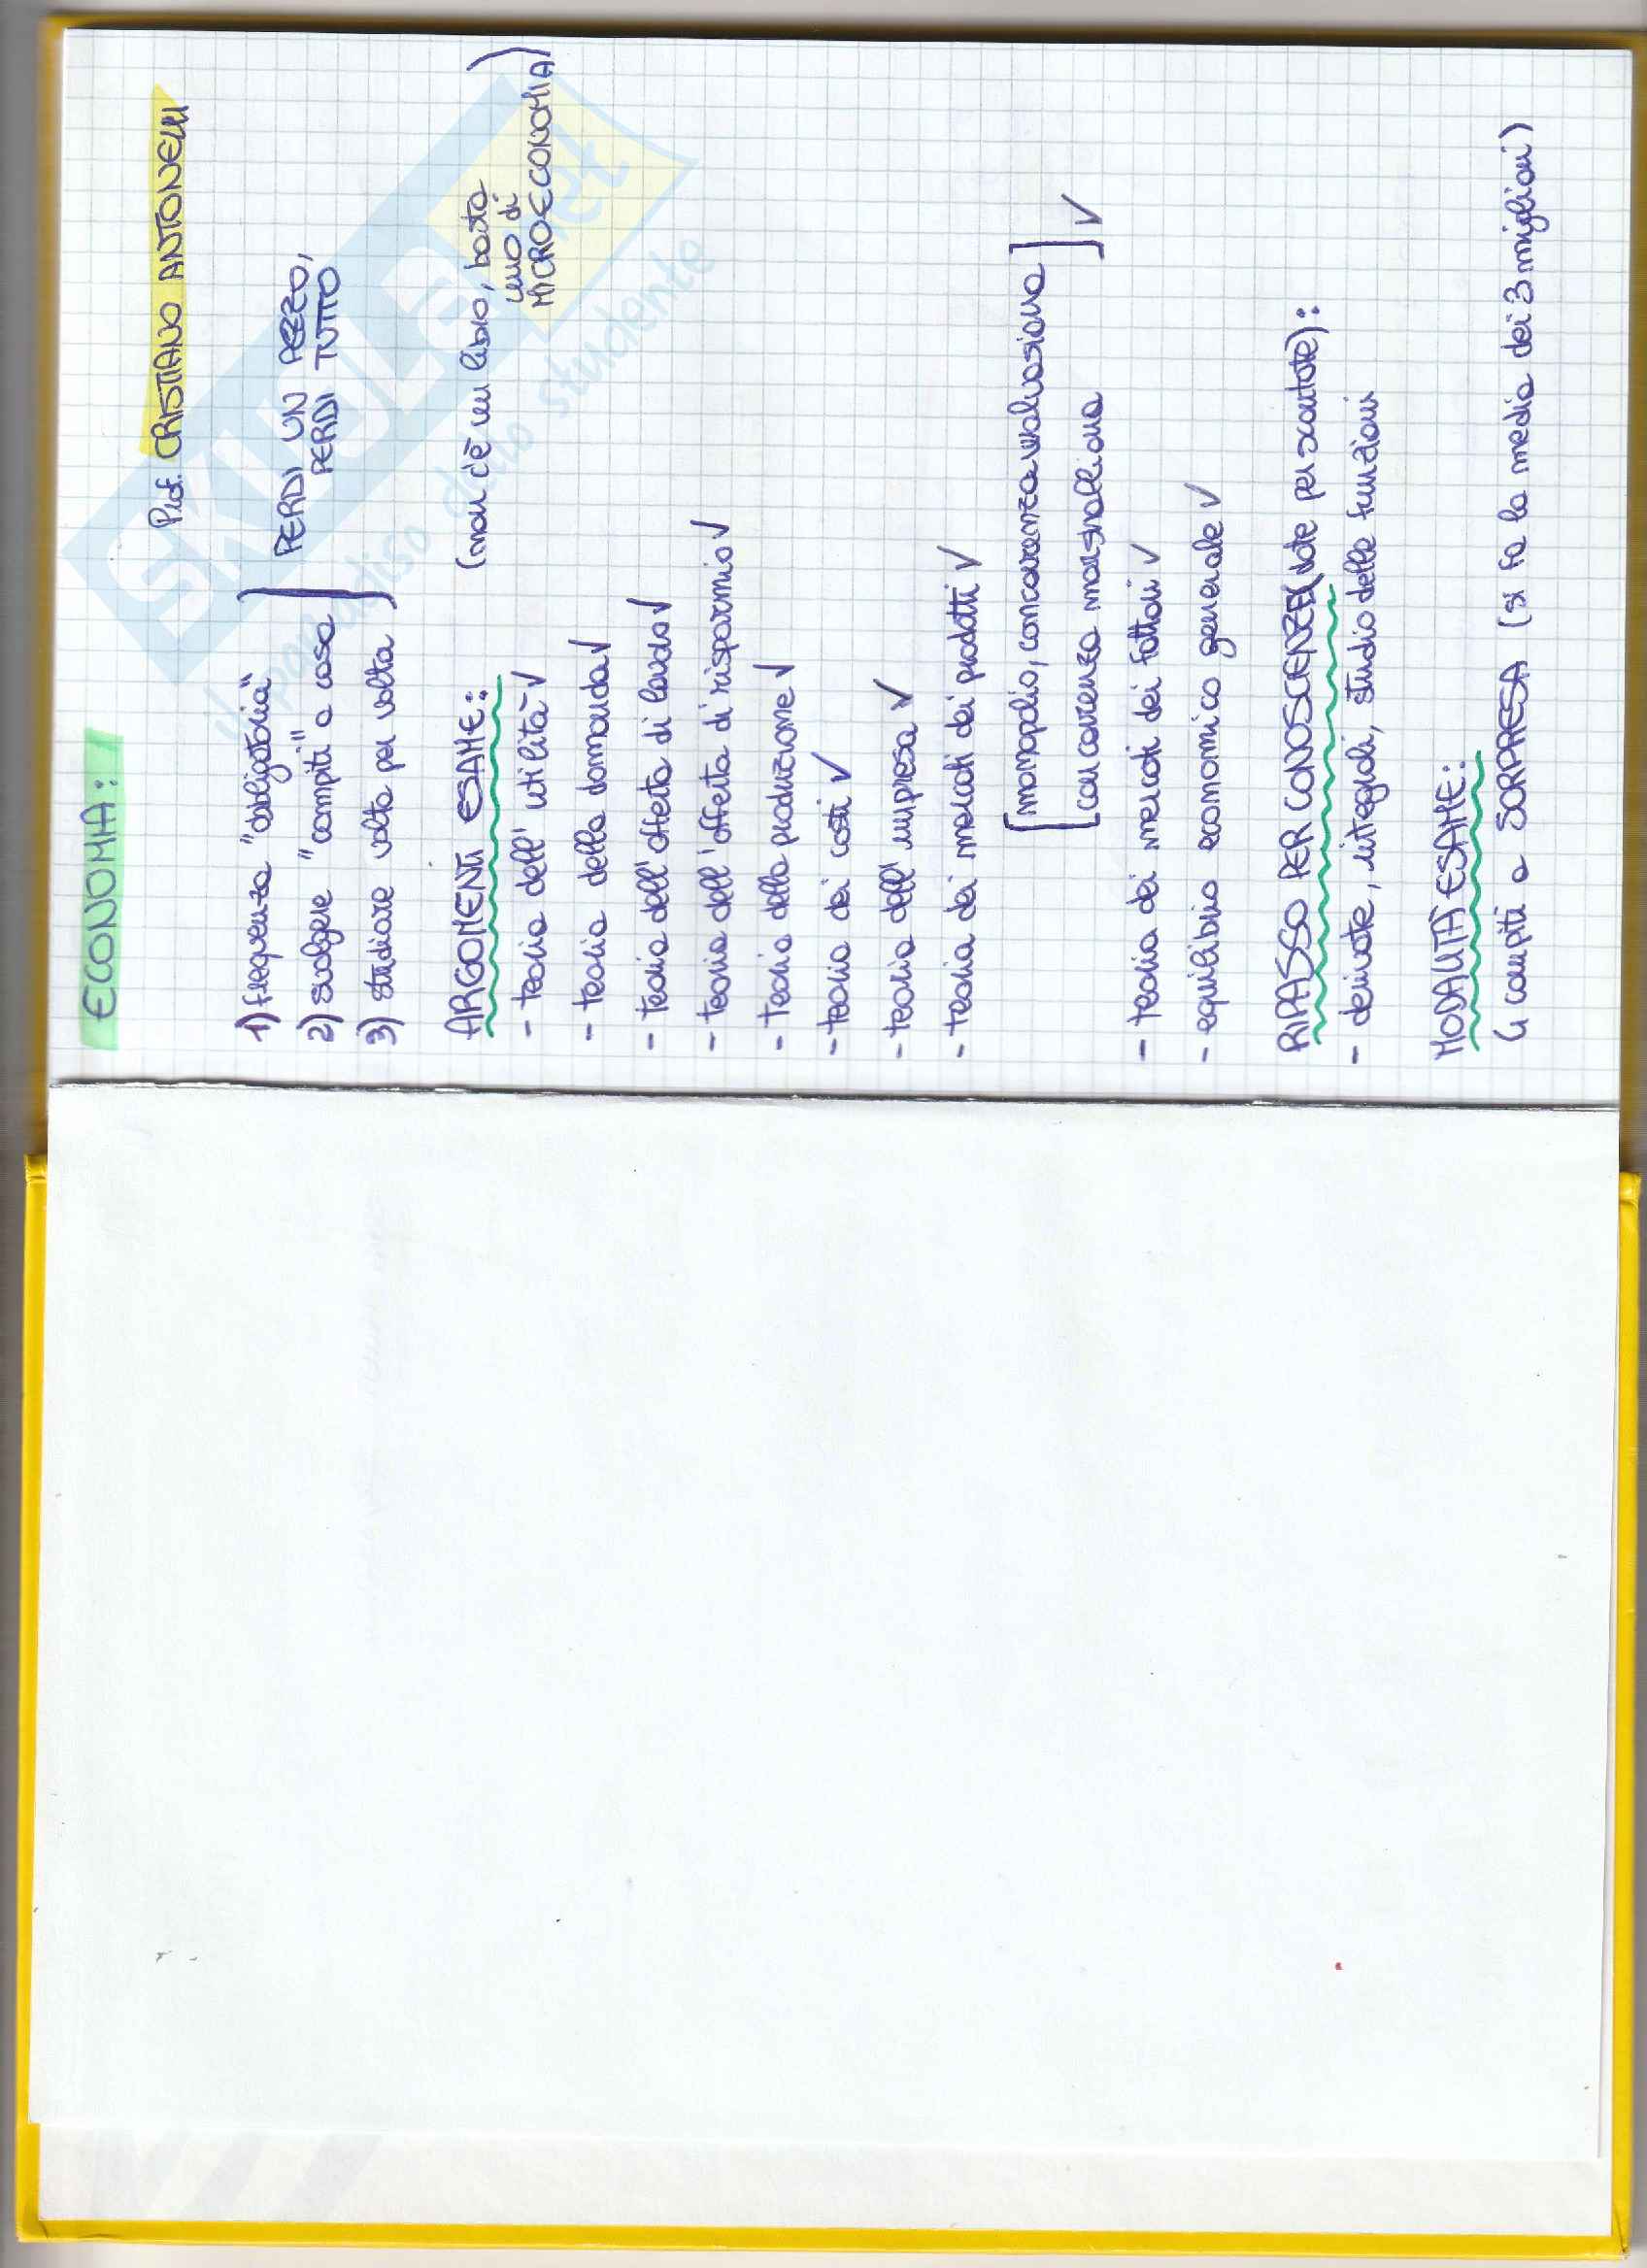 ECONOMIA:
Prof. CRISTIANO ANTONELLI
1) frequenza "obbligatoria"
2) svolgere "compiti" a casa
3) studiare volta per volta
PERDI UN PEZZO,
PERDI TUTTO
ARGOMENTI ESAME:
(non c'è un libro, basta
uno di
MICROECONOMIA)
- teoria dell'utilità ✓
- teoria della domanda ✓
- teoria dell'offerta di lavoro ✓
- teoria dell'offerta di risparmio ✓
- teoria della produzione ✓
- teoria dei costi ✓
- teoria dell'impresa ✓
- teoria dei mercati dei prodotti ✓
[monopolio, concorrenza walrasiana]
[concorrenza marshalliana] ✓
- teoria dei mercati dei fattori ✓
- equilibrio economico generale ✓
RIPASSO PER CONOSCENZE (date per scontate):
- derivate, integrali, studio delle funzioni
MODALITÀ ESAME:
4 compiti a SORPRESA (si fa la media dei 3 migliori)
SKUOLA.net
il paradiso dello studente